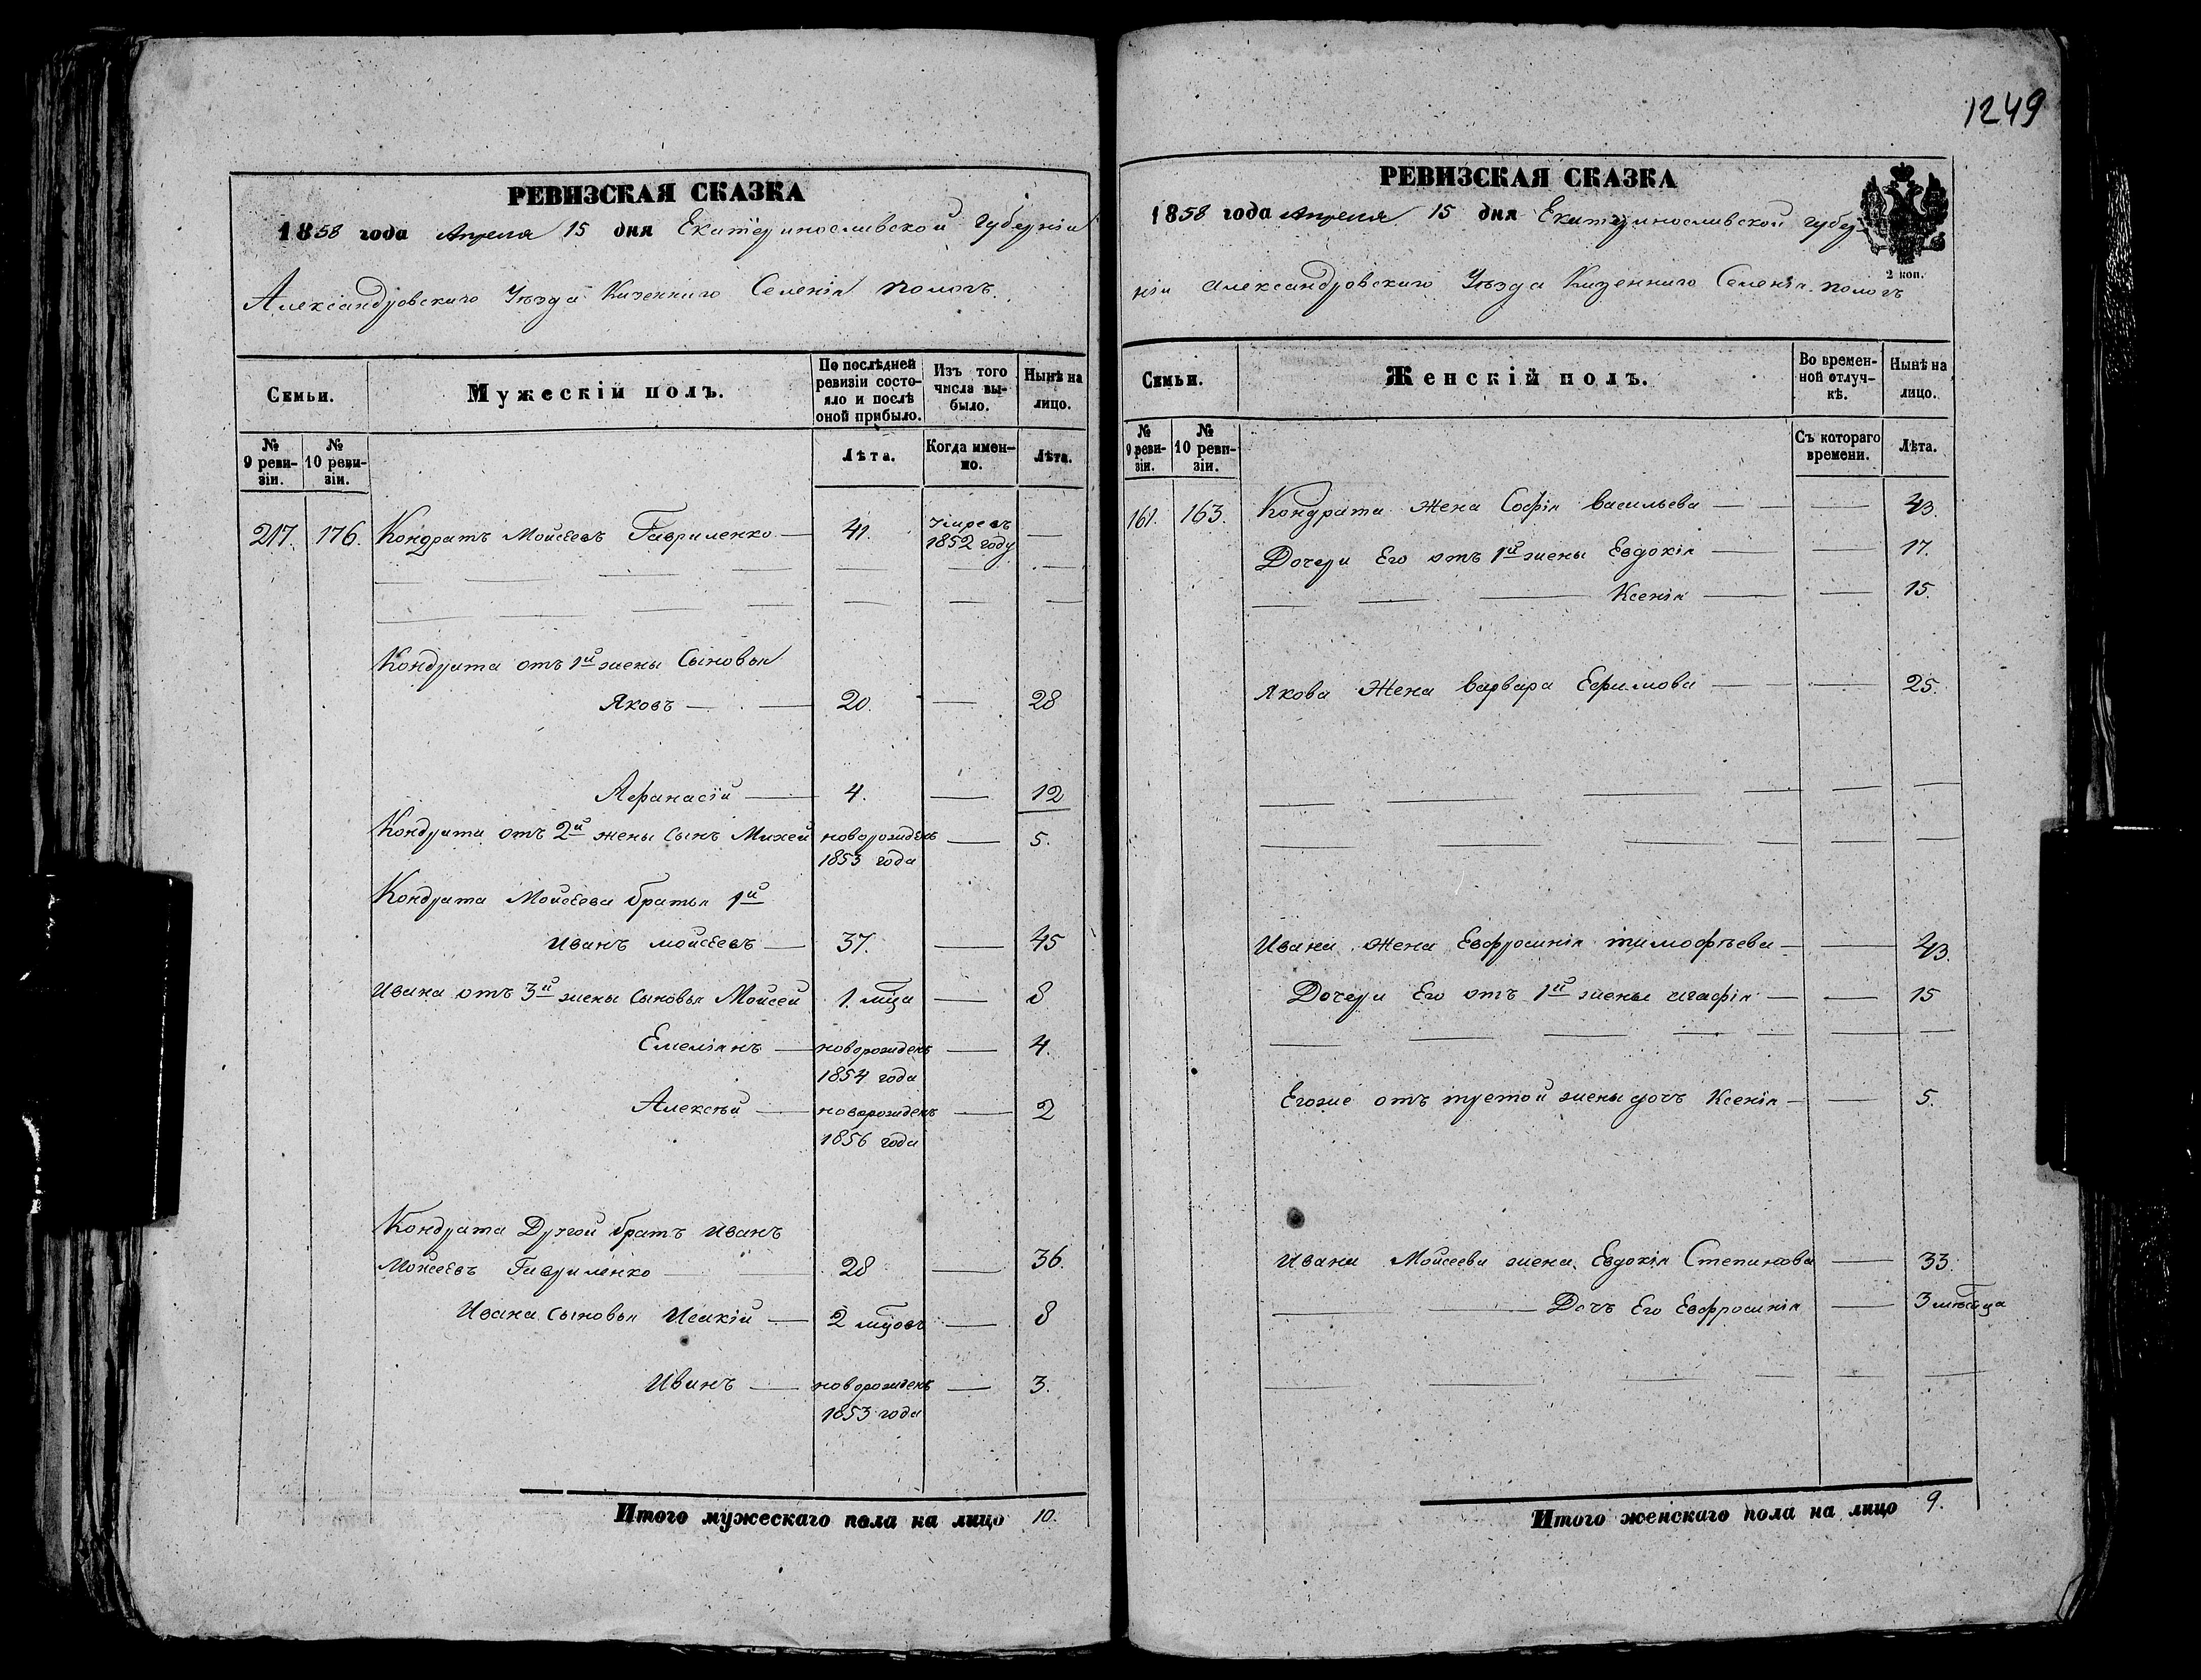 1249
РЕВИЗСКАЯ СКАЗКА
1858 года Апреля 15 дня Екатеринославской Губернiи
Александровскаго Уѣзда Казеннаго Селенiя Пологъ.
Семьи.
Мужескiй полъ.
По послѣдней ревизiи состояло и послѣ оной прибыло.
Изъ того числа выбыло.
Нынѣ на лицо.
№ 9 ревизiи.
№ 10 ревизiи.
Лѣта.
Когда именно.
Лѣта.
217. 176. Кондратъ Мойсеевъ Гавриленко 41. умревъ 1852 году
Кондрата отъ 1й жены Сыновья
Яковъ 20. 28
Афанасiй 4. 12
Кондрата отъ 2й жены сынъ Михей новорожденъ 1853 года 5.
Кондрата Мойсеева братья 1й
Иванъ мойсеевъ 37. 45
Ивана отъ 3й жены сыновья Мойсей 1. мца 8
Емелiянъ новорожденъ 1854 года 4.
Алексѣй новорожденъ 1856 года 2
Кондрата Другой братъ Иванъ
Мойсеевъ Гавриленко 28 36.
Ивана сыновья Исакiй 2 мцовъ 8
Иванъ новорожденъ 1853 года 3.
Итого мужескаго пола на лицо 10.
РЕВИЗСКАЯ СКАЗКА
2 коп.
1858 года Апреля 15 дня Екатеринославской Губер-
нiи Александровскаго Уѣзда Казеннаго Селенiя Пологъ
Семьи.
Женскiй полъ.
Во временной отлучкѣ.
Нынѣ на лицо.
№ 9 ревизiи.
№ 10 ревизiи.
Съ котораго времени.
Лѣта.
161. 163. Кондрата Жена Софiя Васильева 43.
Дочери Его отъ 1й жены Евдокiя 17.
Ксенiя 15.
Якова Жена Варвара Ефимова 25.
Ивана жена Евфросинiя тимофѣева 43.
Дочери Его отъ 1й жены Агафiя 15
Егоже отъ третой жены дочъ Ксенiя 5.
Ивана Мойсеева жена Евдокiя Степанова 33.
Дочъ Его Евфросинiя 3 мѣсяца
Итого женскаго пола на лицо 9.